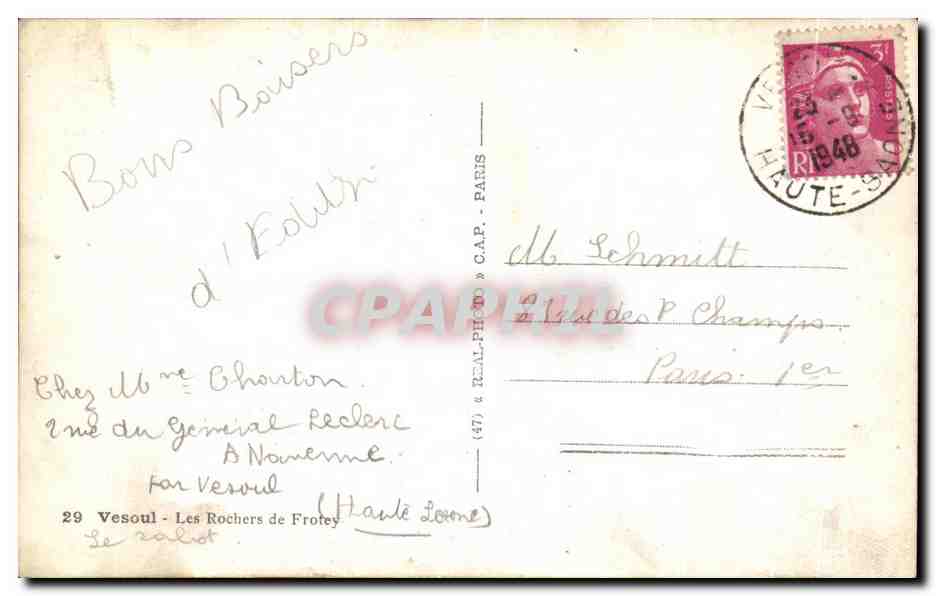 Bons Baisers
d'
Chez Mme Charton
2 rue du Général Leclerc
A Navenne
par Vesoul
(Haute Saone)
29 Vesoul - Les Rochers de Frotey
Le sabot
(47) « REAL-PHOTO » C.A.P. - PARIS
3F
RF
VESOUL
1948
HAUTE-SAONE
M. Schmitt
des P. Champs
Paris 1er
CPAPHIL